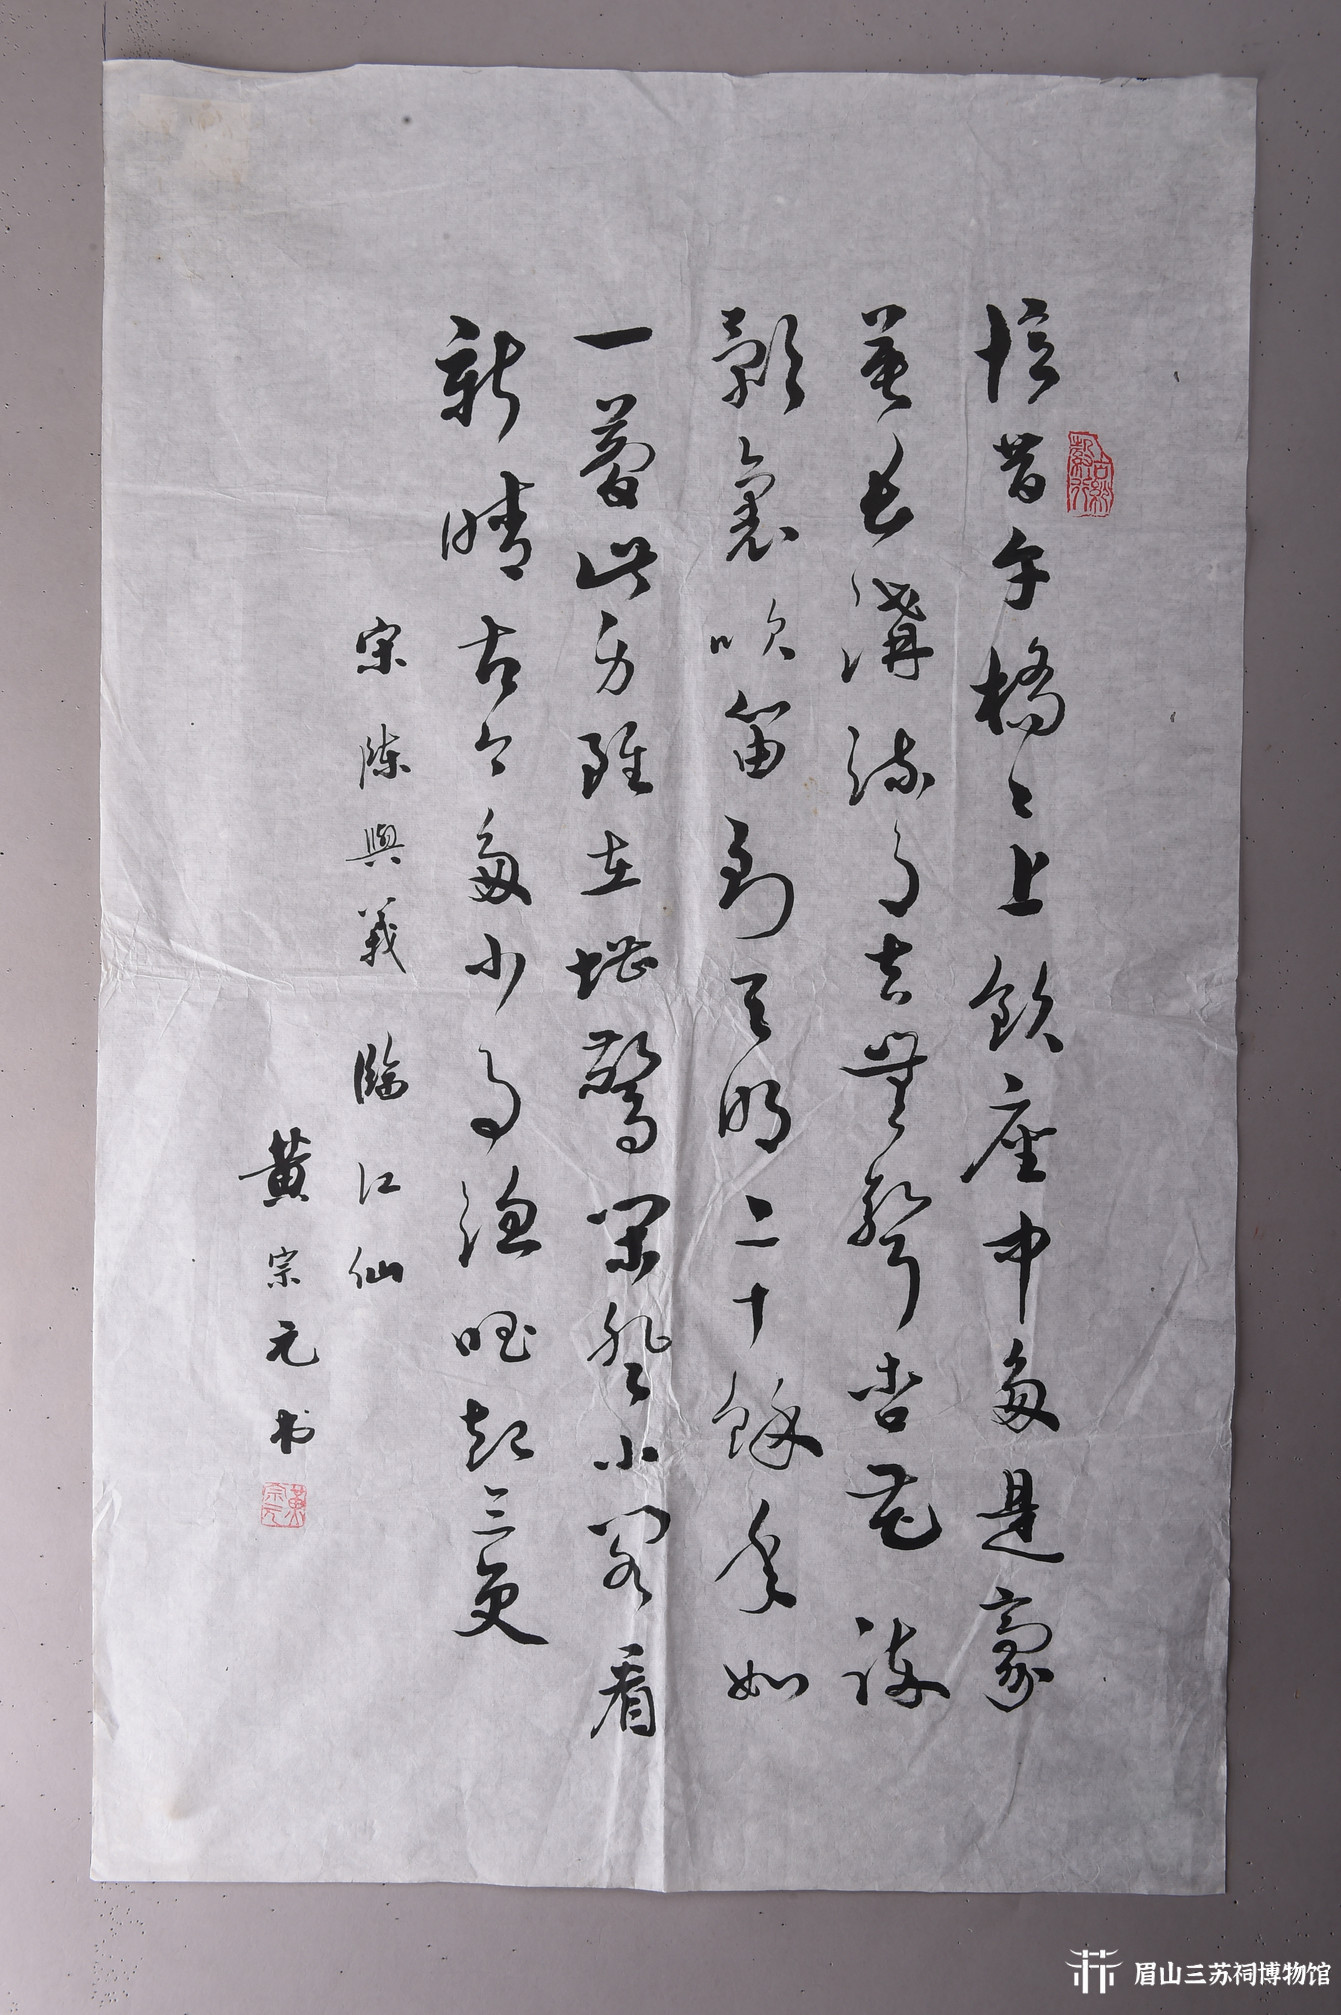 憶昔午橋〻上飲座中多是豪
英長溝流月去無聲杏花疎
影裏吹笛到天明二十餘年如
一夢此身雖在堪驚閑登小閣看
新晴古今多少事漁唱起三更
宋陳與義 臨江仙
黄宗元书
黄宗元
眉山三苏祠博物馆